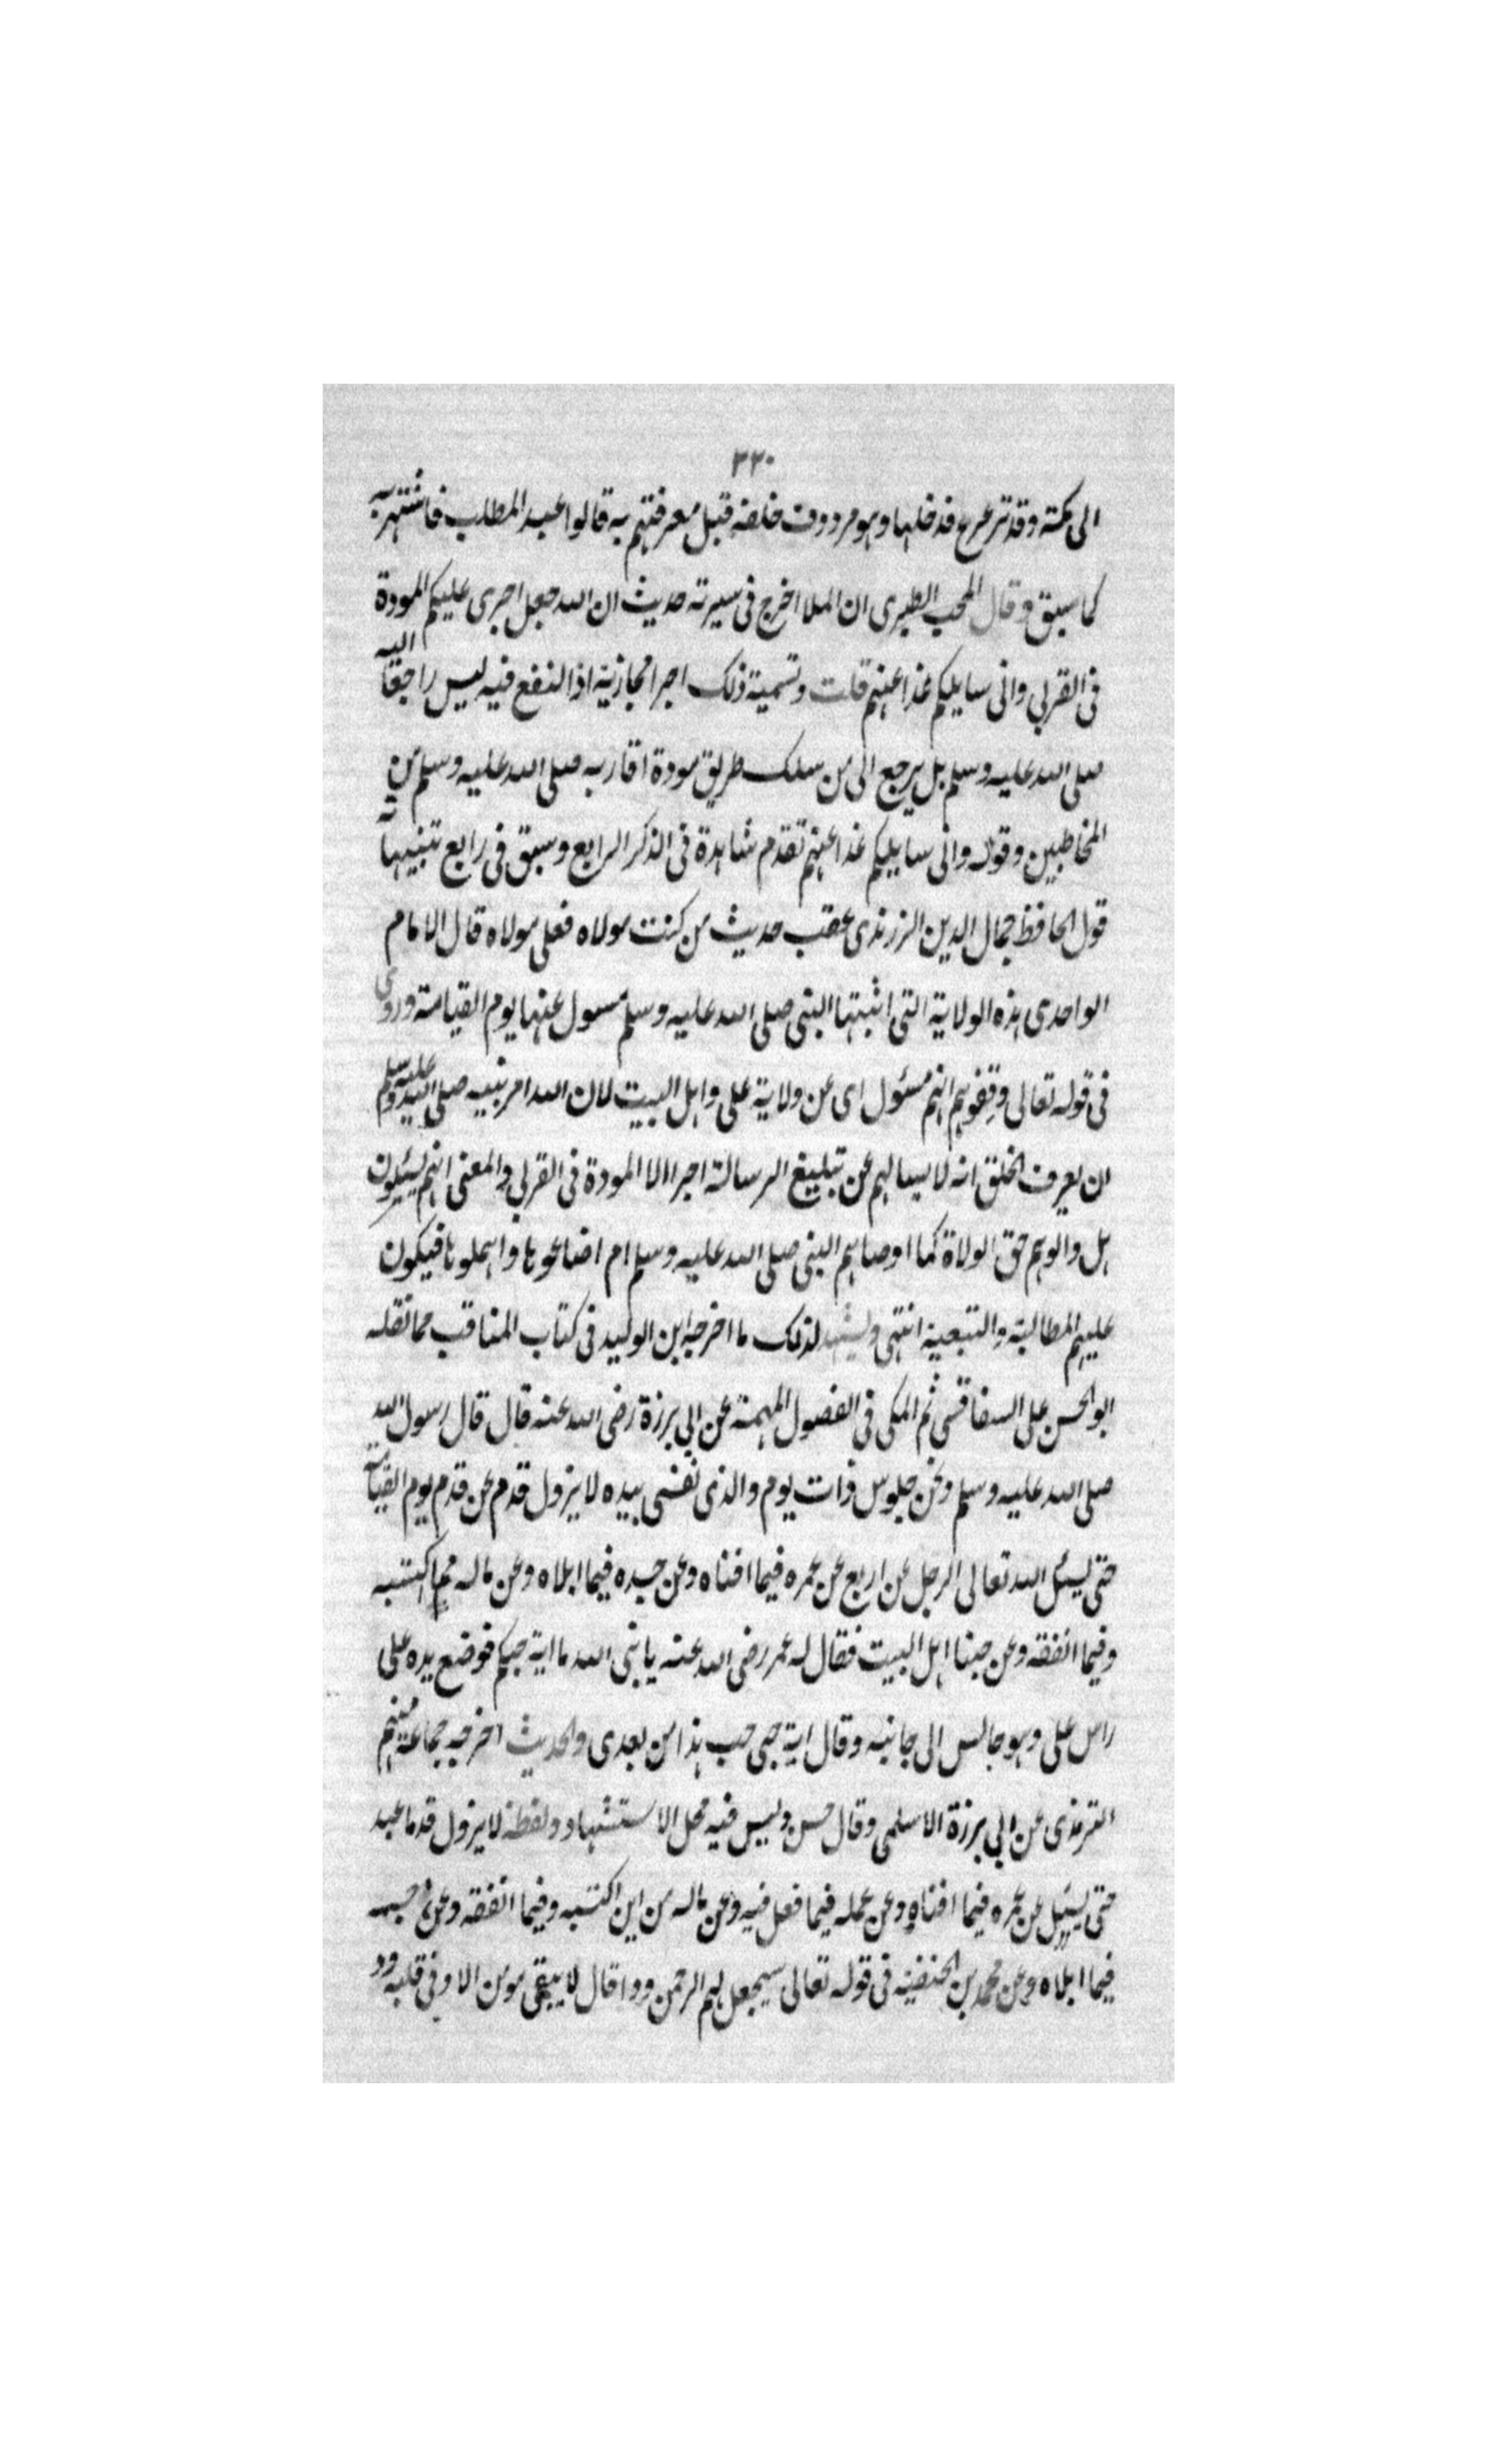 ٣٣٠
الى مكة وقد ترعرع فدخلها وهو مردوف خلفه قبل معرفتهم به قالوا عبد المطلب فاشتهر به
كما سبق وقال المحب الطبرى ان الملا اخرج فى سيرته حديث ان الله جعل اجرى عليكم المودة
فى القربى وانى سايلكم غدا عنهم قلت وتسمية ذلك اجرا مجازية اذ النفع فيه ليس راجعا اليه
صلى الله عليه وسلم بل يرجع الى من سلك طريق مودة اقاربه صلى الله عليه وسلم من
المخاطبين وقوله وانى سايلكم غدا عنهم تقدم شاهده فى الذكر الرابع وسبق فى رابع تنبيهاته
قول الحافظ جمال الدين الزرندى عقب حديث من كنت مولاه فعلى مولاه قال الامام
الواحدى هذه الولاية التى اثبتها النبى صلى الله عليه وسلم مسول عنها يوم القيامة وروى
فى قوله تعالى وقفوهم انهم مسئول اى عن ولاية على واهل البيت لان الله امر نبيه صلى الله عليه وسلم
ان يعرف الخلق انه لا يسالهم عن تبليغ الرسالة اجرا الا المودة فى القربى والمعنى انهم يسئلون
هل والوهم حق الولاة كما اوصاهم النبى صلى الله عليه وسلم ام اضاعوها واهملوها فيكون
عليهم المطالبة والتبعية انتهى ويشهد لذلك ما اخرجه ابن الوليد فى كتاب المناقب مما نقله
ابو الحسن على السفاقسى ثم المكى فى الفصول المهمة عن ابى برزة رضى الله عنه قال قال رسول الله
صلى الله عليه وسلم ونحن جلوس ذات يوم والذى نفسى بيده لا يزول قدم عن قدم يوم القيامة
حتى يسئل الله تعالى الرجل عن اربع عن عمره فيما افناه وعن جسده فيما ابلاه وعن ماله مما اكتسبه
وفيما انفقه وعن حبنا اهل البيت فقال له عمر رضى الله عنه يا نبى الله ما اية حبكم فوضع يده على
راس على وهو جالس الى جانبه وقال اية حبى حب هذا من بعدى والحديث اخرجه جماعة منهم
الترمذى عن ابى برزة الاسلمى وقال حسن وليس فيه محل الاستشهاد ولفظه لا يزول قدما عبد
حتى يسئل عن عمره فيما افناه وعن عمله فيما فعل فيه وعن ماله من اين اكتسبه وفيما انفقه وعن جسمه
فيما ابلاه وعن محمد بن الحنفية فى قوله تعالى سيجعل لهم الرحمن ودا قال لا يبقى مومن الا وفى قلبه ود